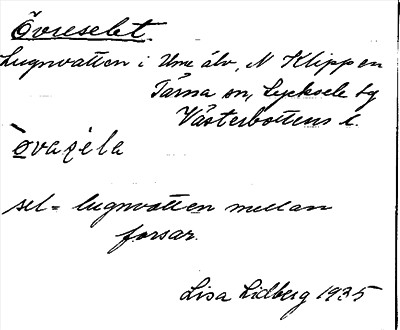 Övreselet.
Lugnvatten i Ume älv, N Klippen
Tärna sn, Lycksele lg
Västerbottens l.
sel = lugnvatten mellan
forsar.
Lisa Lidberg 1935